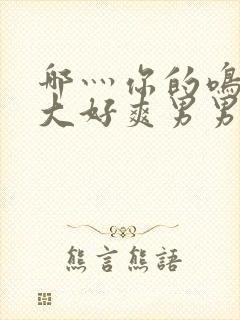 哪灬你的鳴
大好爽男男
熊言熊語